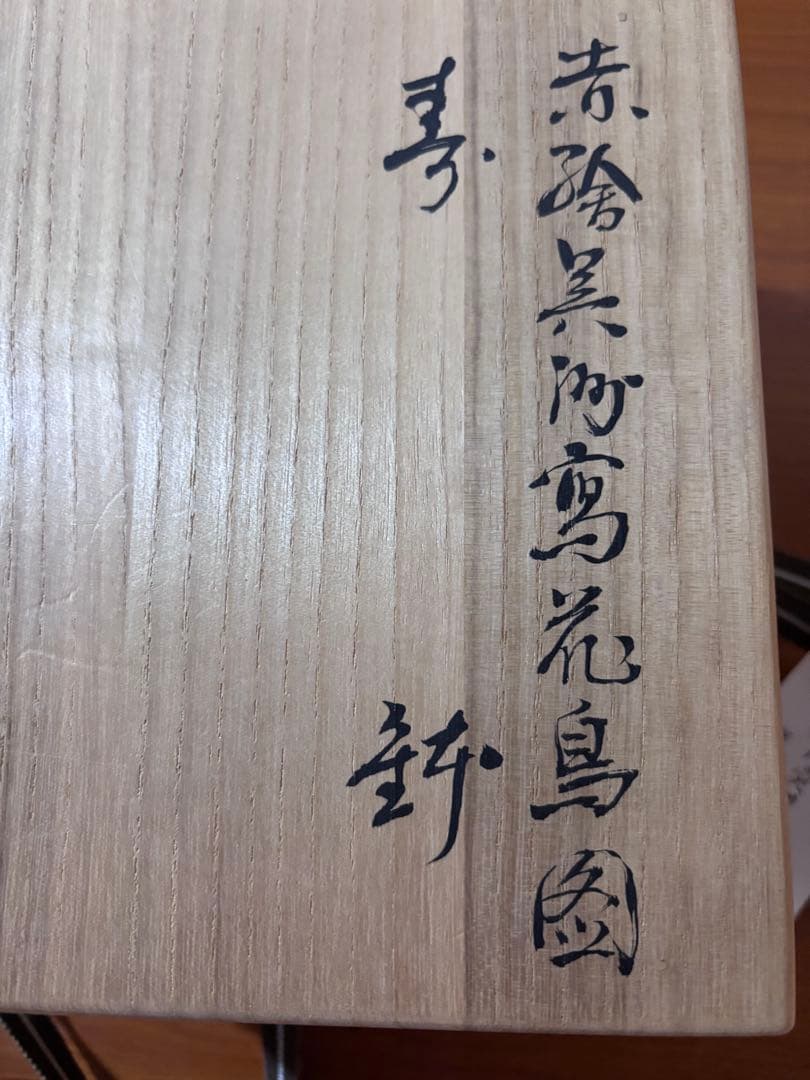 赤繪呉洲寫花鳥図
寿鉢